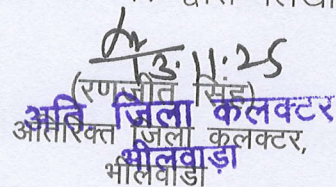 13.11.25
(रणजीत सिंह)
अति जिला कलक्टर
अतिरिक्त जिला कलक्टर,
भीलवाड़ा
भीलवाड़ा